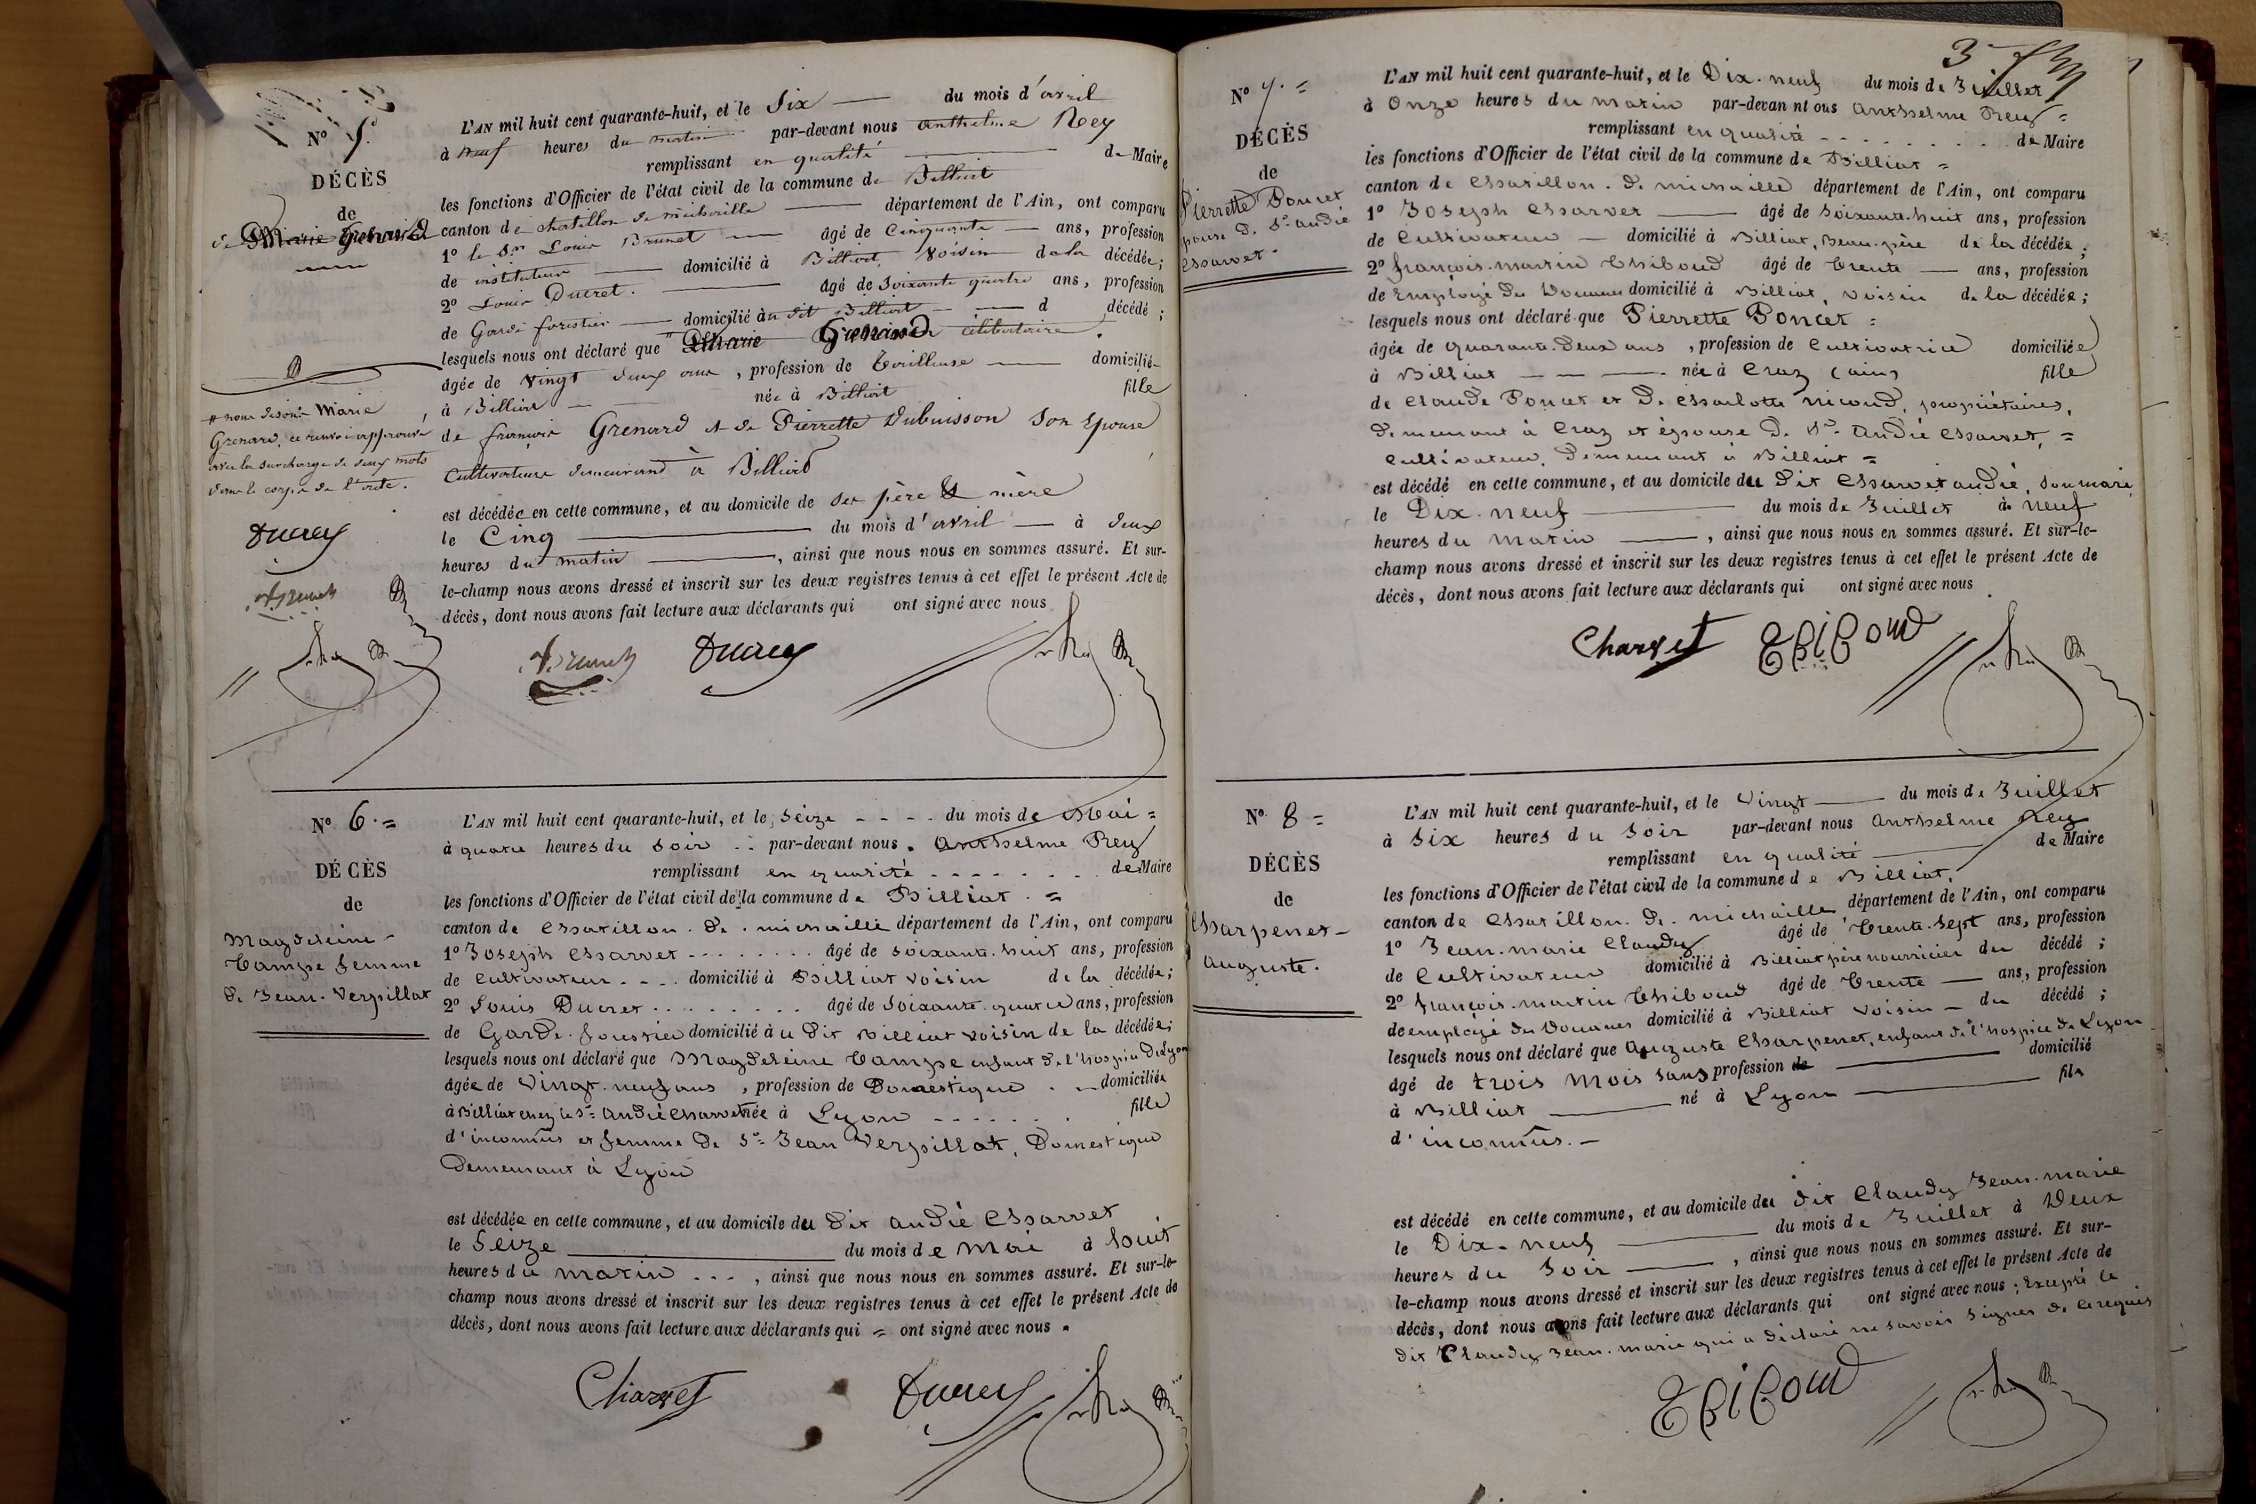 Nº 5.
DÉCÈS
de
de Marie Grenard
L'AN mil huit cent quarante-huit, et le Six du mois d'avril
à neuf heures du matin par-devant nous anthelme Rey
remplissant en qualité de Maire
les fonctions d'Officier de l'état civil de la commune de Billiat
canton de chatillon de michaille département de l'Ain, ont comparu
1º le Sr Louis Brunet âgé de Cinquante ans, profession
de instituteur domicilié à Billiat, Voisin de la décédée;
2º Louis Ducret. âgé de Soixante quatre ans, profession
de Garde forestier domicilié au dit Billiat d décédé;
lesquels nous ont déclaré que Marie Grenard célibataire
âgée de vingt deux ans, profession de domicilié
à Billiat née à Billiat fille
de françois Grenard et de Pierrette Dubuisson Son Epouse
Cultivateurs demeurand à Billiat
est décédée en cette commune, et au domicile de ses père & mère
le Cinq du mois d'avril à deux
heures du matin, ainsi que nous nous en sommes assuré. Et sur-
le-champ nous avons dressé et inscrit sur les deux registres tenus à cet effet le présent Acte de
décès, dont nous avons fait lecture aux déclarants qui ont signé avec nous
# nous disons Marie
Grenard, ce renvoi approuvé
avec la surcharge de deux mots
dans le corps de l'acte.
Ducret
Brunet
Brunet Ducret
Nº 6. =
DÉCÈS
de
Magdeleine
Campe femme
de Jean. Verpillat
L'AN mil huit cent quarante-huit, et le Seize du mois de Mai =
à quatre heures du Soir par-devant nous Anthelme Rey
remplissant en qualité de Maire
les fonctions d'Officier de l'état civil de la commune de Billiat. =
canton de Chatillon. de. michaille département de l'Ain, ont comparu
1º Joseph Charvet âgé de Soixante. huit ans, profession
de Cultivateur domicilié à Billiat voisin de la décédée;
2º Louis Ducret âgé de Soixante. quatre ans, profession
de Garde. forestier domicilié au dit Billiat voisin de la décédée;
lesquels nous ont déclaré que Magdeleine Campe enfant de l'hospice de Lyon
âgée de Vingt. neuf ans, profession de Domestique domiciliée
à Billiat chez le Sr André Charvet née à Lyon fille
d'inconnûs et femme de Sr Jean Verpillat, Domestique
Demeurant à Lyon
est décédée en cette commune, et au domicile du dit André Charvet
le Seize du mois de Mai à huit
heures du matin, ainsi que nous nous en sommes assuré. Et sur-le-
champ nous avons dressé et inscrit sur les deux registres tenus à cet effet le présent Acte de
décès, dont nous avons fait lecture aux déclarants qui = ont signé avec nous.
Charvet Ducret
3
Nº 7. =
DÉCÈS
de
Pierrette Poncet
pouse de Sr André
Charvet.
L'AN mil huit cent quarante-huit, et le Dix. neuf du mois de Juillet
à Onze heures du matin par-devan nt ous Anthelme Rey =
remplissant en qualité de Maire
les fonctions d'Officier de l'état civil de la commune de Billiat =
canton de Chatillon. de michaille département de l'Ain, ont comparu
1º Joseph Charvet âgé de Soixante. huit ans, profession
de Cultivateur domicilié à Billiat, Beau. père de la décédée;
2º françois. martin Thiboud âgé de Trente ans, profession
de Employé des Douanes domicilié à Billiat, voisin de la décédée;
lesquels nous ont déclaré que Pierrette Poncet =
âgée de quarante. Deux ans, profession de Cultivatrice domiciliée
à Billiat née à Craz (ain) fille
de Claude Poncet et De Charlotte nicoud, propriétaires,
demeurant à Craz et épouse de Sr André Charvet, =
Cultivateur, Demeurant à Billiat =
est décédé en cette commune, et au domicile du Dit Charvet andré, son mari
le Dix. neuf du mois de Juillet à neuf
heures du matin, ainsi que nous nous en sommes assuré. Et sur-le-
champ nous avons dressé et inscrit sur les deux registres tenus à cet effet le présent Acte de
décès, dont nous avons fait lecture aux déclarants qui ont signé avec nous
Charvet Thiboud
Nº 8 =
DÉCÈS
de
Charpenet
auguste.
L'AN mil huit cent quarante-huit, et le Vingt du mois de Juillet
à Six heures du Soir par-devant nous Anthelme Rey
remplissant en qualité de Maire
les fonctions d'Officier de l'état civil de la commune de Billiat,
canton de Chatillon. de. michaille, département de l'Ain, ont comparu
1º Jean. marie Claudy âgé de Trente. Sept ans, profession
de Cultivateur domicilié à Billiat père nourricier du décédé;
2º françois. martin Thiboud âgé de Trente ans, profession
de employé des Douanes domicilié à Billiat voisin du décédé;
lesquels nous ont déclaré que Auguste Charpenet, enfant de l'hospice de Lyon
âgé de trois mois sans profession de domicilié
à Billiat né à Lyon fils
d'inconnûs.
est décédé en cette commune, et au domicile du dit Claudy Jean. marie
le Dix. neuf du mois de Juillet à Deux
heures du Soir, ainsi que nous nous en sommes assuré. Et sur-
le-champ nous avons dressé et inscrit sur les deux registres tenus à cet effet le présent Acte de
décès, dont nous avons fait lecture aux déclarants qui ont signé avec nous; Excepté le
dit Claudy Jean. marie qui a déclaré ne savoir Signer de ce requis
Thiboud